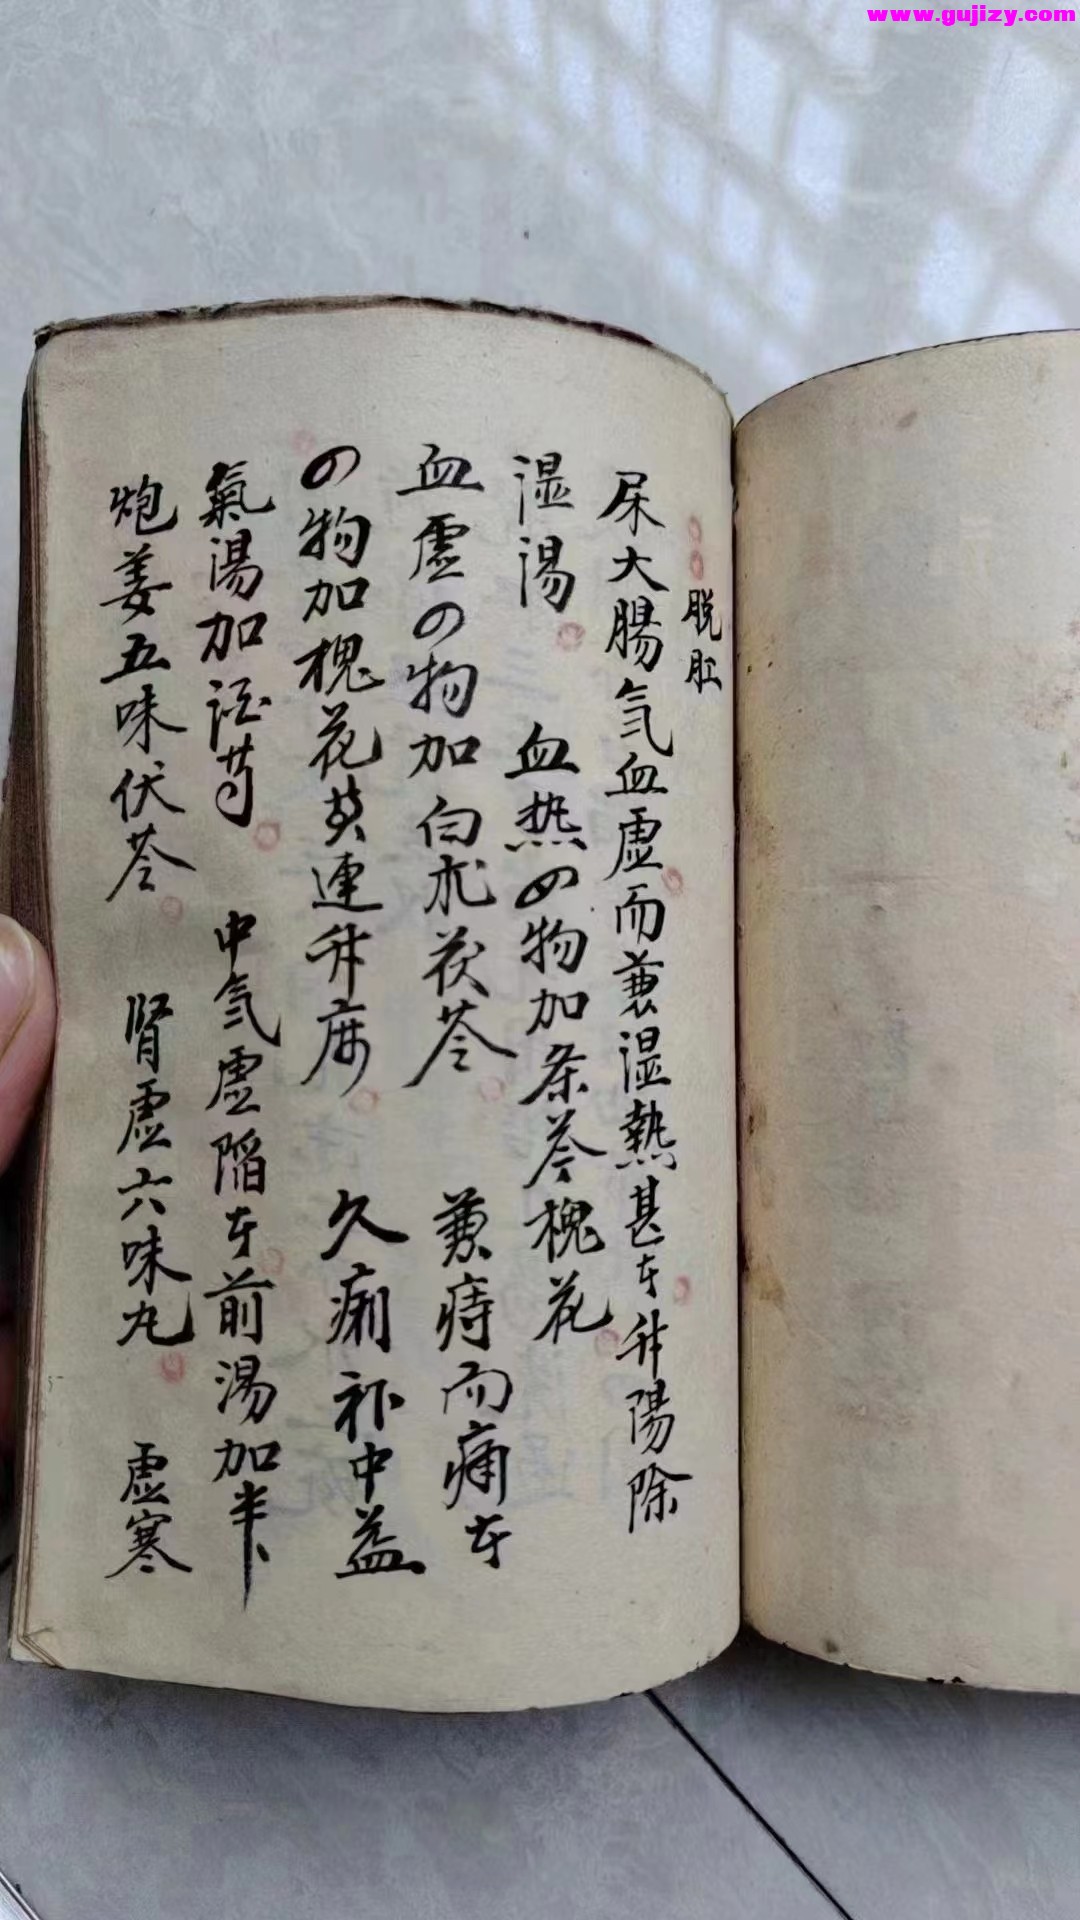 www.gujizy.com
脱肛
屎大腸気血虚而兼湿熱甚者升陽除
湿湯 血热四物加条芩槐花
血虚四物加白朮茯苓 兼痔而痛者
四物加槐花黄連升麻 久痢补中益
氣湯加酒芍 中気虚陷者前湯加半卜
炮姜五味伏苓 腎虚六味丸 虚寒